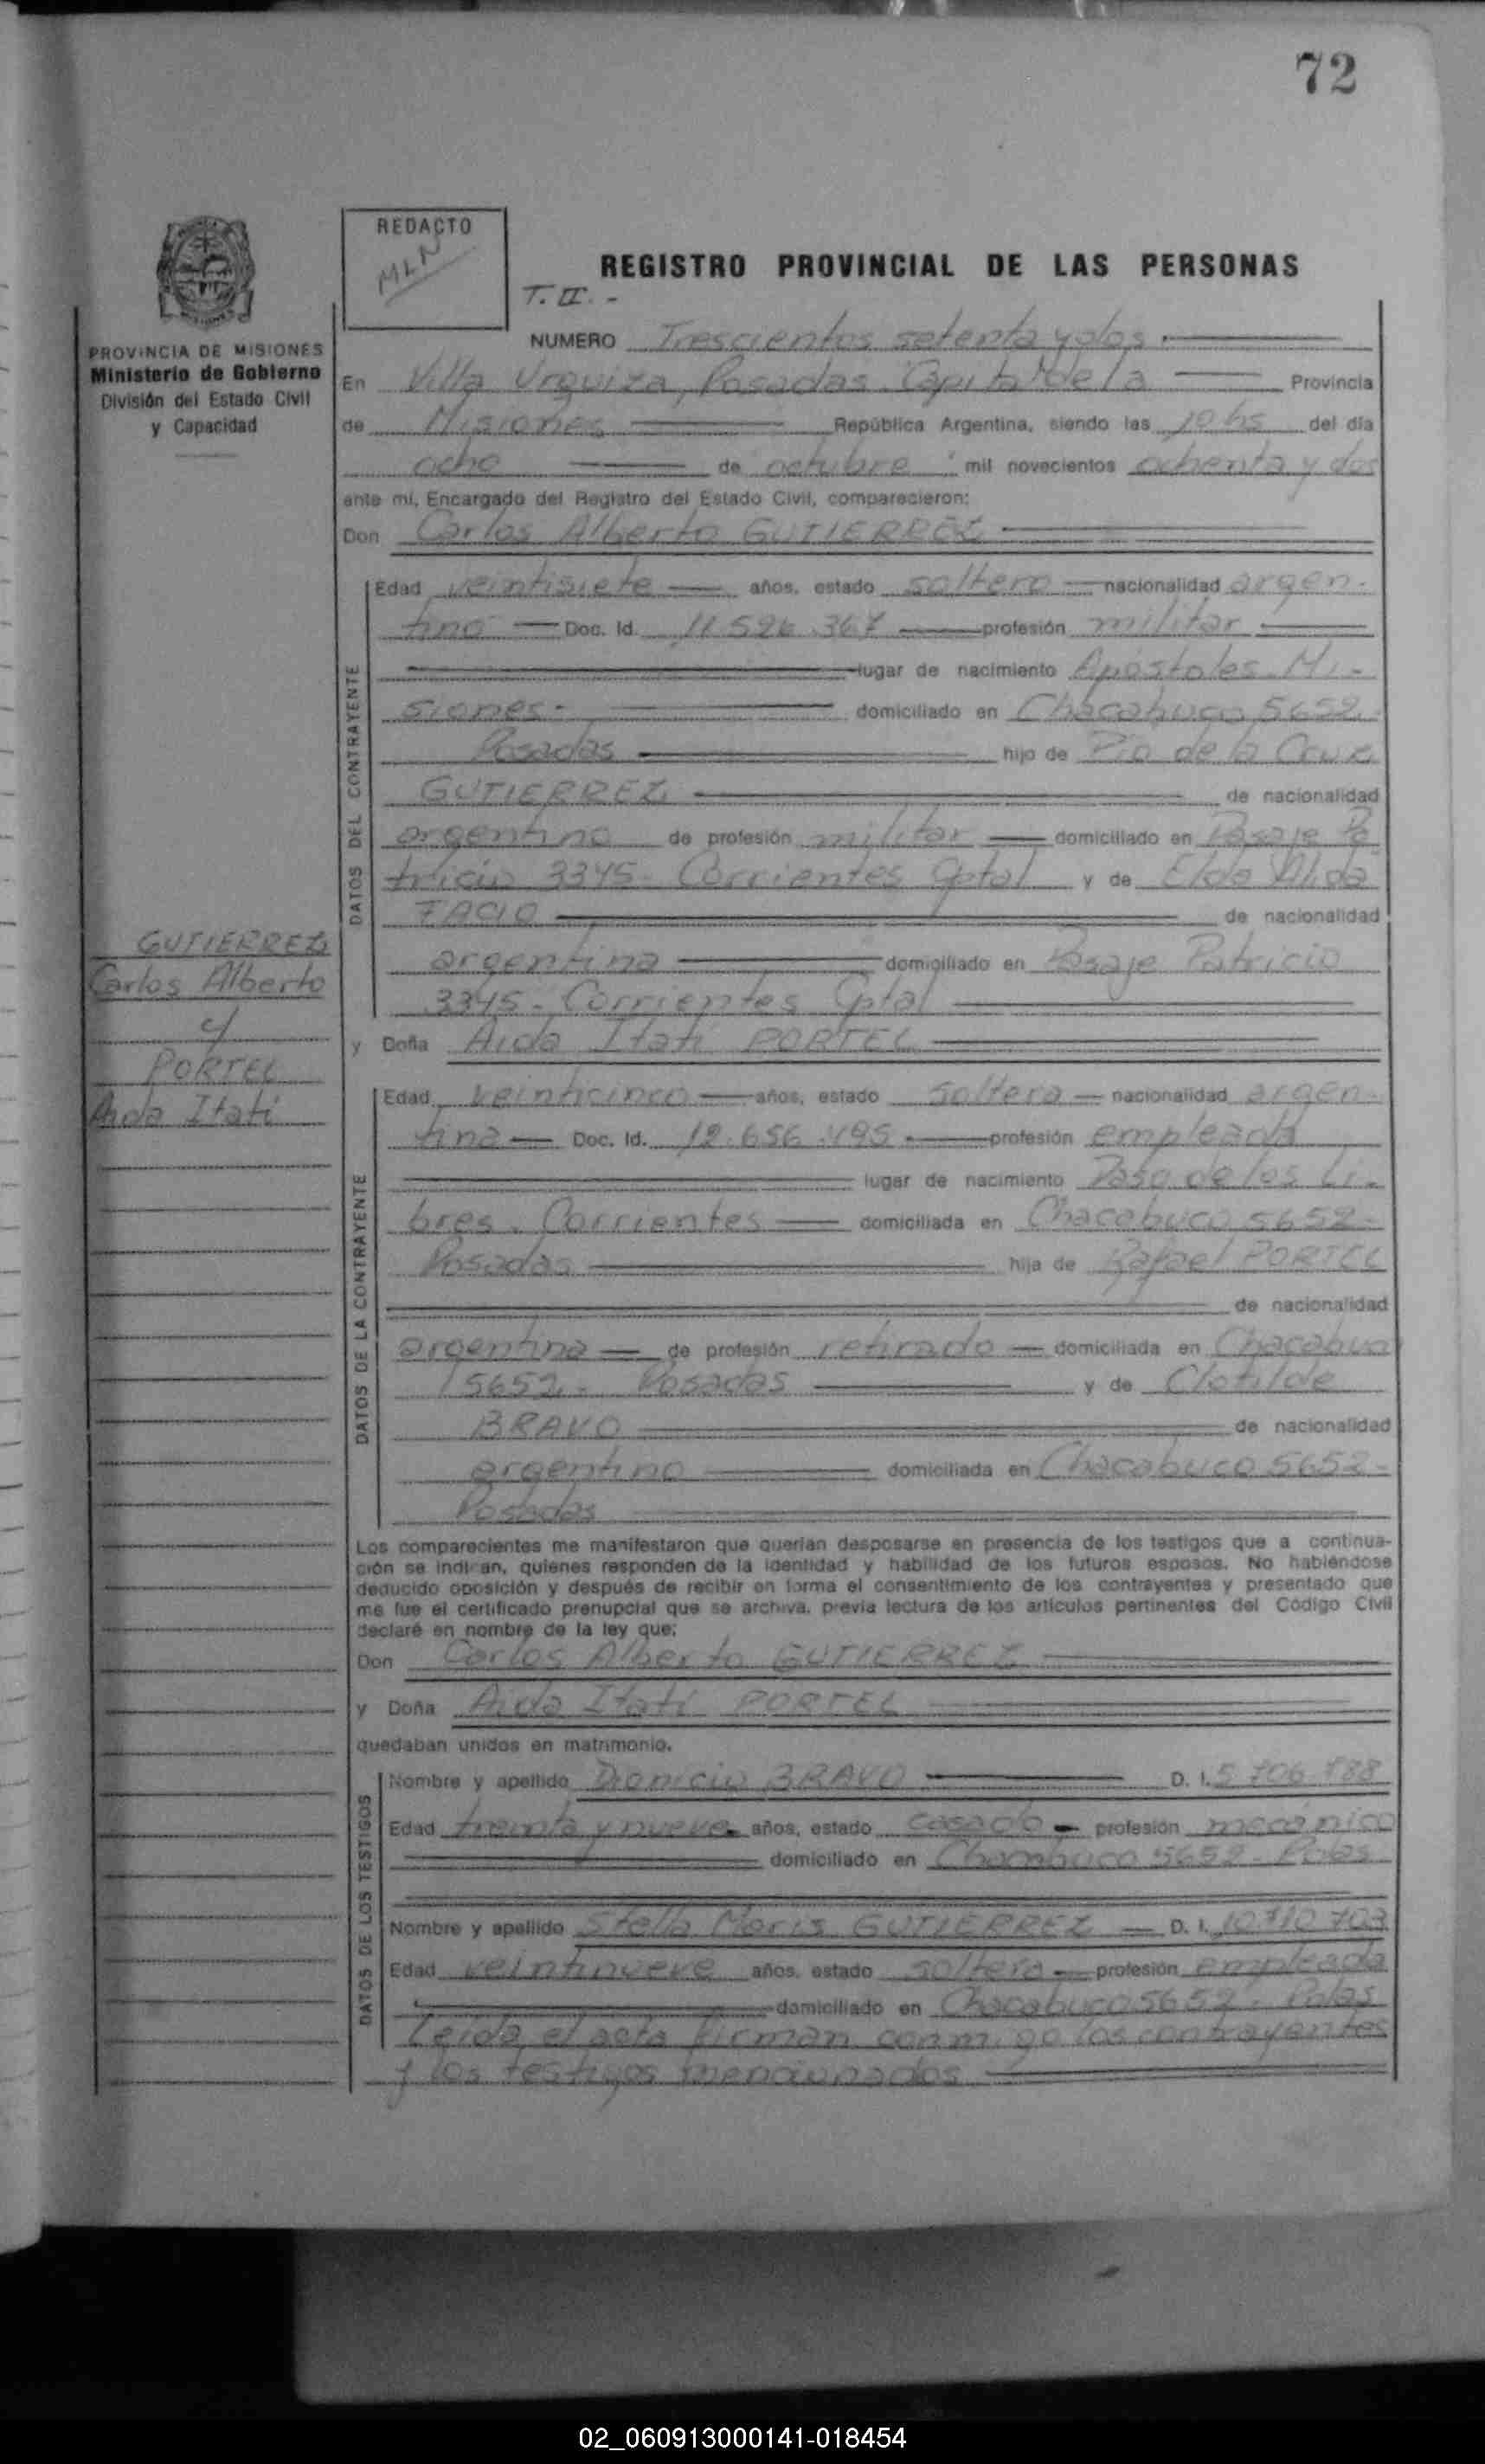 72
REDACTO
MLN
REGISTRO PROVINCIAL DE LAS PERSONAS
T. II. -
PROVINCIA DE MISIONES
Ministerio de Gobierno
División del Estado Civil
y Capacidad
NUMERO Trescientos setenta y dos
En Villa Urquiza, Posadas Capital de la Provincia
de Misiones República Argentina, siendo las 10 hs del día
ocho de octubre mil novecientos ochenta y dos
ante mí, Encargado del Registro del Estado Civil, comparecieron:
Don Carlos Alberto GUTIERREZ
DATOS DEL CONTRAYENTE
Edad veintisiete años, estado soltero nacionalidad argen-
tino Doc. Id. 11.526.367 profesión militar
lugar de nacimiento Apóstoles. Mi-
siones. domiciliado en Chacabuco 5652.
Posadas hijo de Pío de la Cruz
GUTIERREZ de nacionalidad
argentino de profesión militar domiciliado en Pasaje Pa
tricio 3345- Corrientes Cptal y de Elda Alida
FACIO de nacionalidad
argentina domiciliado en Pasaje Patricio
3345- Corrientes Cptal
GUTIERREZ
Carlos Alberto
c/
PORTEL
Aida Itatí
y Doña Aida Itatí PORTEL
DATOS DE LA CONTRAYENTE
Edad veinticinco años, estado soltera nacionalidad argen-
tina Doc. Id. 12.656.495 profesión empleada
lugar de nacimiento Paso de los Li-
bres. Corrientes domiciliada en Chacabuco 5652-
Posadas hija de Rafael PORTEL
de nacionalidad
argentina de profesión retirado domiciliada en Chacabuco
5652- Posadas y de Clotilde
BRAVO de nacionalidad
argentino domiciliada en Chacabuco 5652-
Posadas
Los comparecientes me manifestaron que querían desposarse en presencia de los testigos que a continua-
ción se indican, quienes responden de la identidad y habilidad de los futuros esposos. No habiéndose
deducido oposición y después de recibir en forma el consentimiento de los contrayentes y presentado que
me fue el certificado prenupcial que se archiva, previa lectura de los artículos pertinentes del Código Civil
declaré en nombre de la ley que:
Don Carlos Alberto GUTIERREZ
y Doña Aida Itatí PORTEL
quedaban unidos en matrimonio.
DATOS DE LOS TESTIGOS
Nombre y apellido Dionicio BRAVO D. I. 5 706 888
Edad treinta y nueve años, estado casado profesión mecánico
domiciliado en 5652- Pdas
Nombre y apellido Stella Maris GUTIERREZ D. I. 10 310 703
Edad veintinueve años, estado soltera profesión empleada
domiciliado en Chacabuco 5652- Pdas
Leída el acta firman conmigo los contrayentes
y los testigos mencionados
02_060913000141-018454